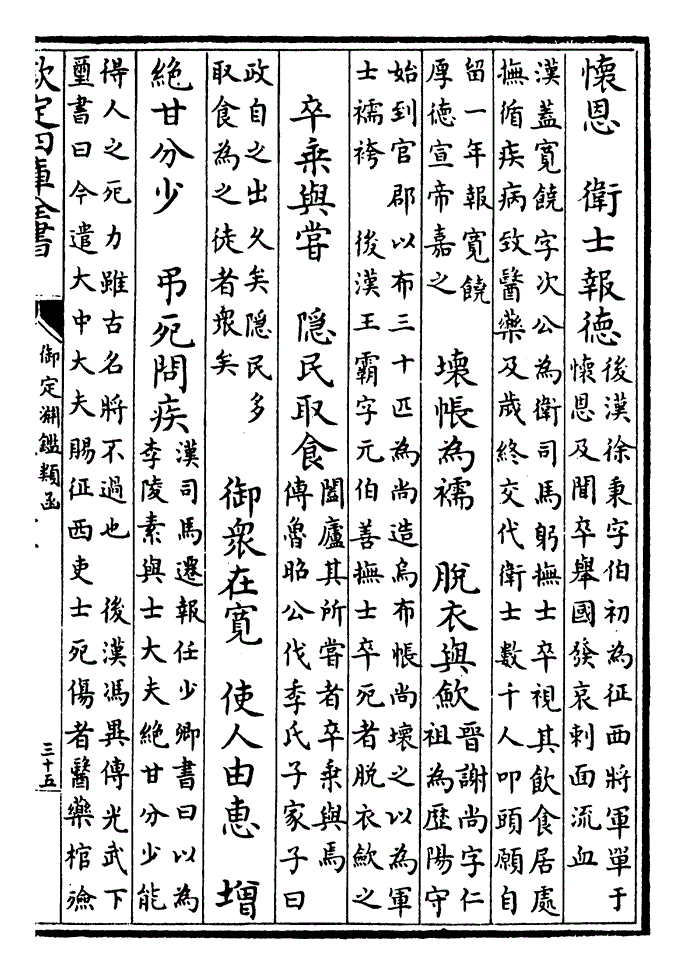 懷恩　衛士報德
後漢徐秉字伯初為征西將軍單于
懷恩及聞卒舉國發哀剌面流血
漢蓋寛饒字次公為衛司馬躬撫士卒視其飲食居處
撫循疾病致醫藥及歲終交代衛士數千人叩頭願自
留一年報寛饒
厚德宣帝嘉之
壞帳為襦　脫衣與歛
晉謝尚字仁
祖為歴陽守
始到官郡以布三十匹為尚造烏布帳尚壞之以為軍
士襦袴　後漢王霸字元伯善撫士卒死者脫衣歛之
卒乗與嘗　隠民取食
闔廬其所嘗者卒乗與焉
傳魯昭公伐季氏子家子曰
政自之出久矣隠民多
取食為之徒者衆矣
御衆在寛　使人由恵　增
絶甘分少　弔死問疾
漢司馬遷報任少卿書曰以為
李陵素與士大夫絶甘分少能
得人之死力雖古名將不過也　後漢馮異傳光武下
璽書曰今遣大中大夫賜征西吏士死傷者醫藥棺殮
欽定四庫全書
御定淵鑑類函
三十五